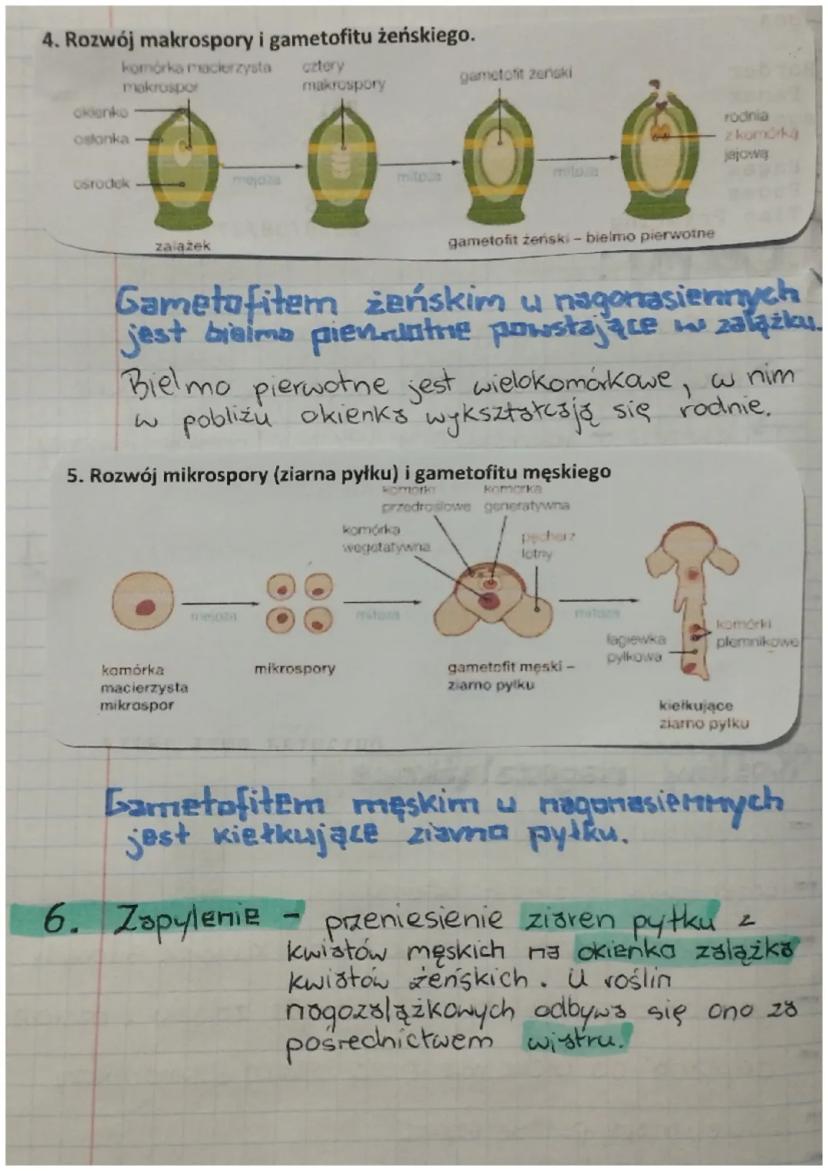 4. Rozwój makrospory i gametofitu żeńskiego.
komórka macierzysta makrospor
cztery makrospory
gametofit żeński
okienko
osłonka
ośrodek
rodnia z komórką jajową
mejoza
mitoza
mitoza
zalążek
gametofit żeński – bielmo pierwotne
Gametofitem żeńskim u nagonasiennych
jest bielmo pierwotne powstające w zalążku.
Bielmo pierwotne jest wielokomórkowe, w nim
w pobliżu okienka wykształcają się rodnie.
5. Rozwój mikrospory (ziarna pyłku) i gametofitu męskiego
komórki przedroslowe
komórka generatywna
komórka wegetatywna
pęcherz lotny
mejoza
mitoza
mitoza
łagiewka pyłkowa
komórki plemnikowe
komórka macierzysta mikrospor
mikrospory
gametofit męski – ziarno pyłku
kiełkujące ziarno pyłku
Gametofitem męskim u nagonasiennych
jest kiełkujące ziarno pyłku.
6. Zapylenie – przeniesienie ziaren pyłku z
kwiatów męskich na okienko zalążka
kwiatów żeńskich. U roślin
nagozalążkowych odbywa się ono za
pośrednictwem wiatru.